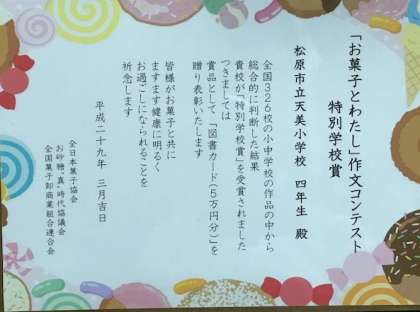 「お菓子とわたし」作文コンテスト
特別学校賞
松原市立天美小学校 四年生 殿
全国326校の小中学校の作品の中から
総合的に判断した結果
貴校が「特別学校賞」を受賞されました
つきましては
賞品として「図書カード(5万円分)」を
贈り表彰いたします
皆様がお菓子と共に
ますます健康に明るく
お過ごしになられることを
祈念します
平成二十九年 三月吉日
全日本菓子協会
お砂糖“真”時代協議会
全国菓子卸商業組合連合会